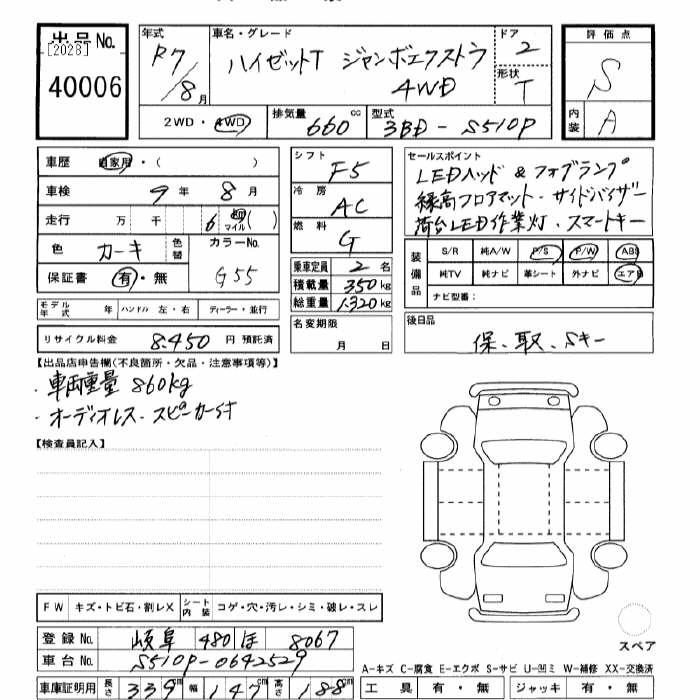 出品No. [2028] 40006
年式 R7/8月
車名・グレード ハイゼットT ジャンボエクストラ 4WD
ドア 2
形状 T
2WD・4WD
排気量 660 cc
型式 3BD-S510P
評価点 S
内装 A
車歴 自家用・( )
車検 9年 8月
走行 万 千 6 マイル ( )
色 カーキ 色替
カラーNo. G55
保証書 有・無
モデル年式 年 ハンドル 左・右 ディーラー・並行
リサイクル料金 8,450 円 預託済
シフト F5
冷房 AC
燃料 G
乗車定員 2 名
積載量 350 kg
総重量 1,320 kg
名変期限 月 日
セールスポイント
LEDヘッド & フォグランプ
縁高フロアマット・サイドバイザー
荷台LED作業灯・スマートキー
装備品 S/R 純A/W P/S P/W ABS
純TV 純ナビ 革シート 外ナビ エアB
ナビ型番:
後日品
保、取、Sキー
【出品店申告欄(不良箇所・欠品・注意事項等)】
・車両重量 860kg
・オーディオレス・スピーカー付
【検査員記入】
FW キズ・トビ石・割レX シート内装 コゲ・穴・汚レ・シミ・破レ・スレ
登録No. 岐阜 480 ほ 8067
車台No. S510P-0642529
車庫証明用 長さ 339cm 幅 147cm 高さ 188cm
スペア
A-キズ C-腐食 E-エクボ S-サビ U-凹ミ W-補修 XX-交換済
工具 有・無 ジャッキ 有・無